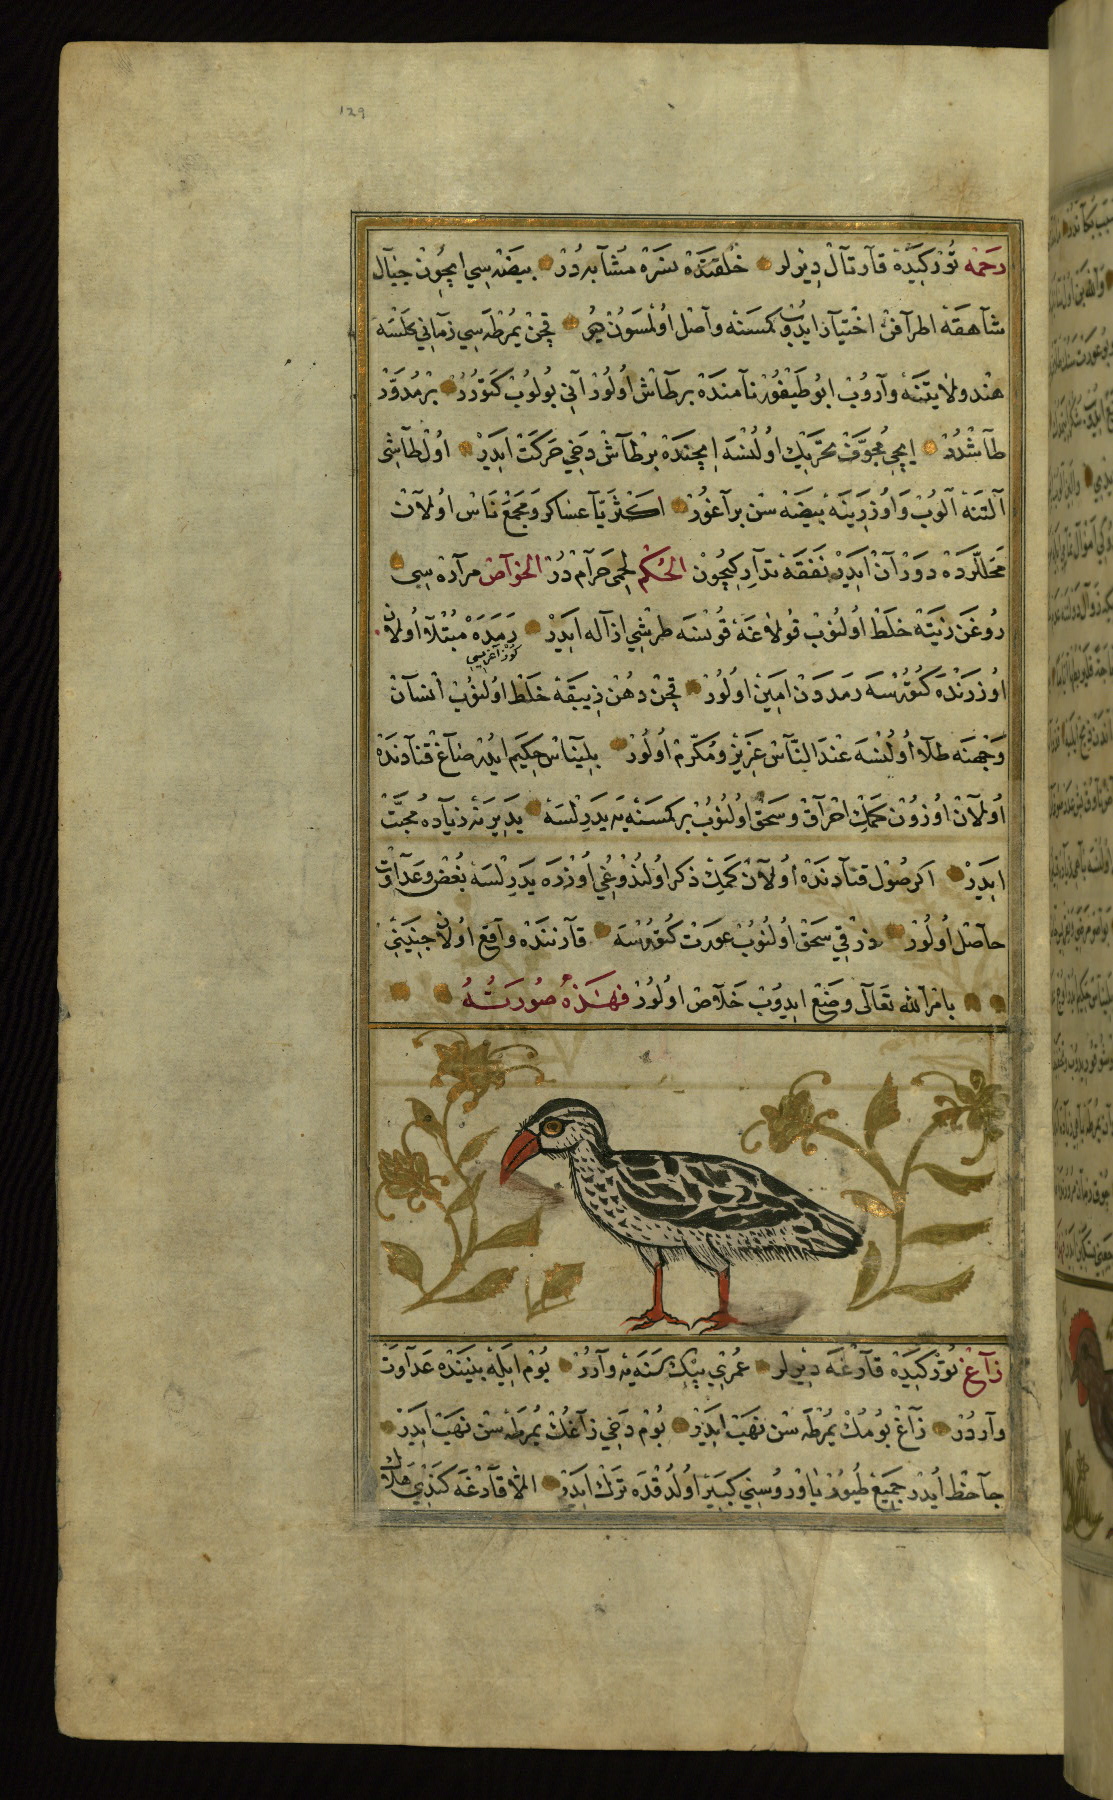 129
رَحَمَه تُورْكِيَدَه قَارتَالْ دِيرْلر خُلْقَتَدَه نسَرَه مُشَابِه دُرْ بيضَه سِي ايچُونْ جِبَال
شَاهقَهْ اطرَافِنْ اخْتيَارْ ايدُوبْ كمسَنَه وَاصْل اولمْسَونْ ديُو قچَنْ يمُرْطَه سِي زَمَانِي كلسَه
هنْد ولايتنَه وَارُوبْ ابُو طَيْفُورْ نَامنَدَه بر طَاشْ اُولُورْ آنِي بُولُوبْ كتورُرْ بِرْ مُدَوَّرْ
طَاشْدُرْ ايچي مُجوَّفْ تحريكْ اولُنسَه ايچنْدَه بِرْ طَاشْ دَخِي حَرَكَتْ ايدَرْ اولْ طَاشِي
آلتنَه آلُوبْ وَاوزرينَه بيضَه سن براغُورْ اكثَريَا عسَاكر وَ مَجمَع نَاسْ اولانْ
مَحَللّرْدَه دَوَرَانْ ايدَرْ نَفَقَه تدَارِكيچُونْ الحُكْم لحمى حَرَامْ دُرْ الخوَاصْ مرَارَه سِي
رُوغَن زَيتَه خلَطْ اُولنُوبْ قُولاغَه قُونسَه طَرشِي ازَاله ايدَرْ رَمَدَه مُبْتَلَا اُولَانْ
كوز اغريسي
اوزرنْدَه كتُورسَه رَمَدَدَنْ امينْ اولُورْ قچَنْ دهنْ زيبقَه خلَطْ اولنُوبْ انسَانْ
وَجهنَه طلَا اُولُنسَه عنْدَ النَّاسْ عَزيزْ وَمُكرَّمْ اولُورْ بلينَاسْ حكيَم ايدُر صَاغْ قنَادنَدَه
اُولانْ اوزُونْ كمكْ احْرَاقْ وَ سَحَقْ اولنُوبْ بر كمسنَه يَه يدرلسَه يدِيرنَه زيَادَه مُحبَّتْ
ايدَرْ اكر صُول قنَادنَدَه اُولانْ كمكْ ذكر اولنْدُوغِي اوزْرَه يدرلسَه بُغض وَعَدَاوَتْ
حَاصْل اُولُورْ ذرْقِي سَحَقْ اُولنُوبْ عورَتْ كتُورسَه قَارننَدَه وَاقع اولانْ جنِينِي
بامْر اللَّه تعَالَى وَضَع ايدُوبْ خَلَاصْ اولُورْ فهَذه صُورَتُهُ
زَاغْ تورْكيَدَه قَارْغَه دِيرلر عُمري بيكْ سَنَه يَه وَارُرْ بُوم ايلَه بيننَدَه عَدَاوَتْ
وَاردُرْ زَاغْ بُومُكْ يُمُرْطَه سن نهبْ ايدَرْ بُوم دَخِي زَاغُكْ يُمُرْطَه سن نهبْ ايدَرْ
جَاحَظ ايدُر جَميع طُيُورْ يَاوروسِني كبير اولدُقدَه تَرْك ايدَرْ الا قَارْغَه كندِي هلَاك